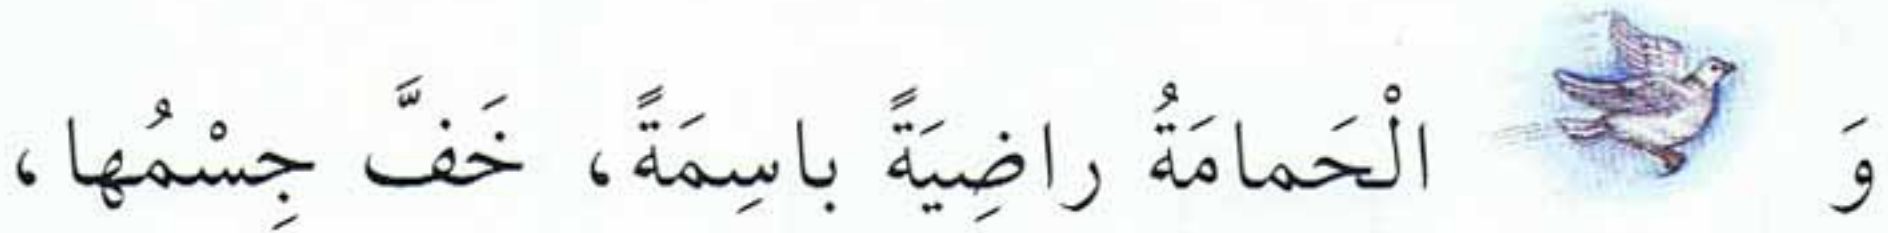 وَ الْحَمامَةُ راضِيَةً باسِمَةً، خَفَّ جِسْمُها،